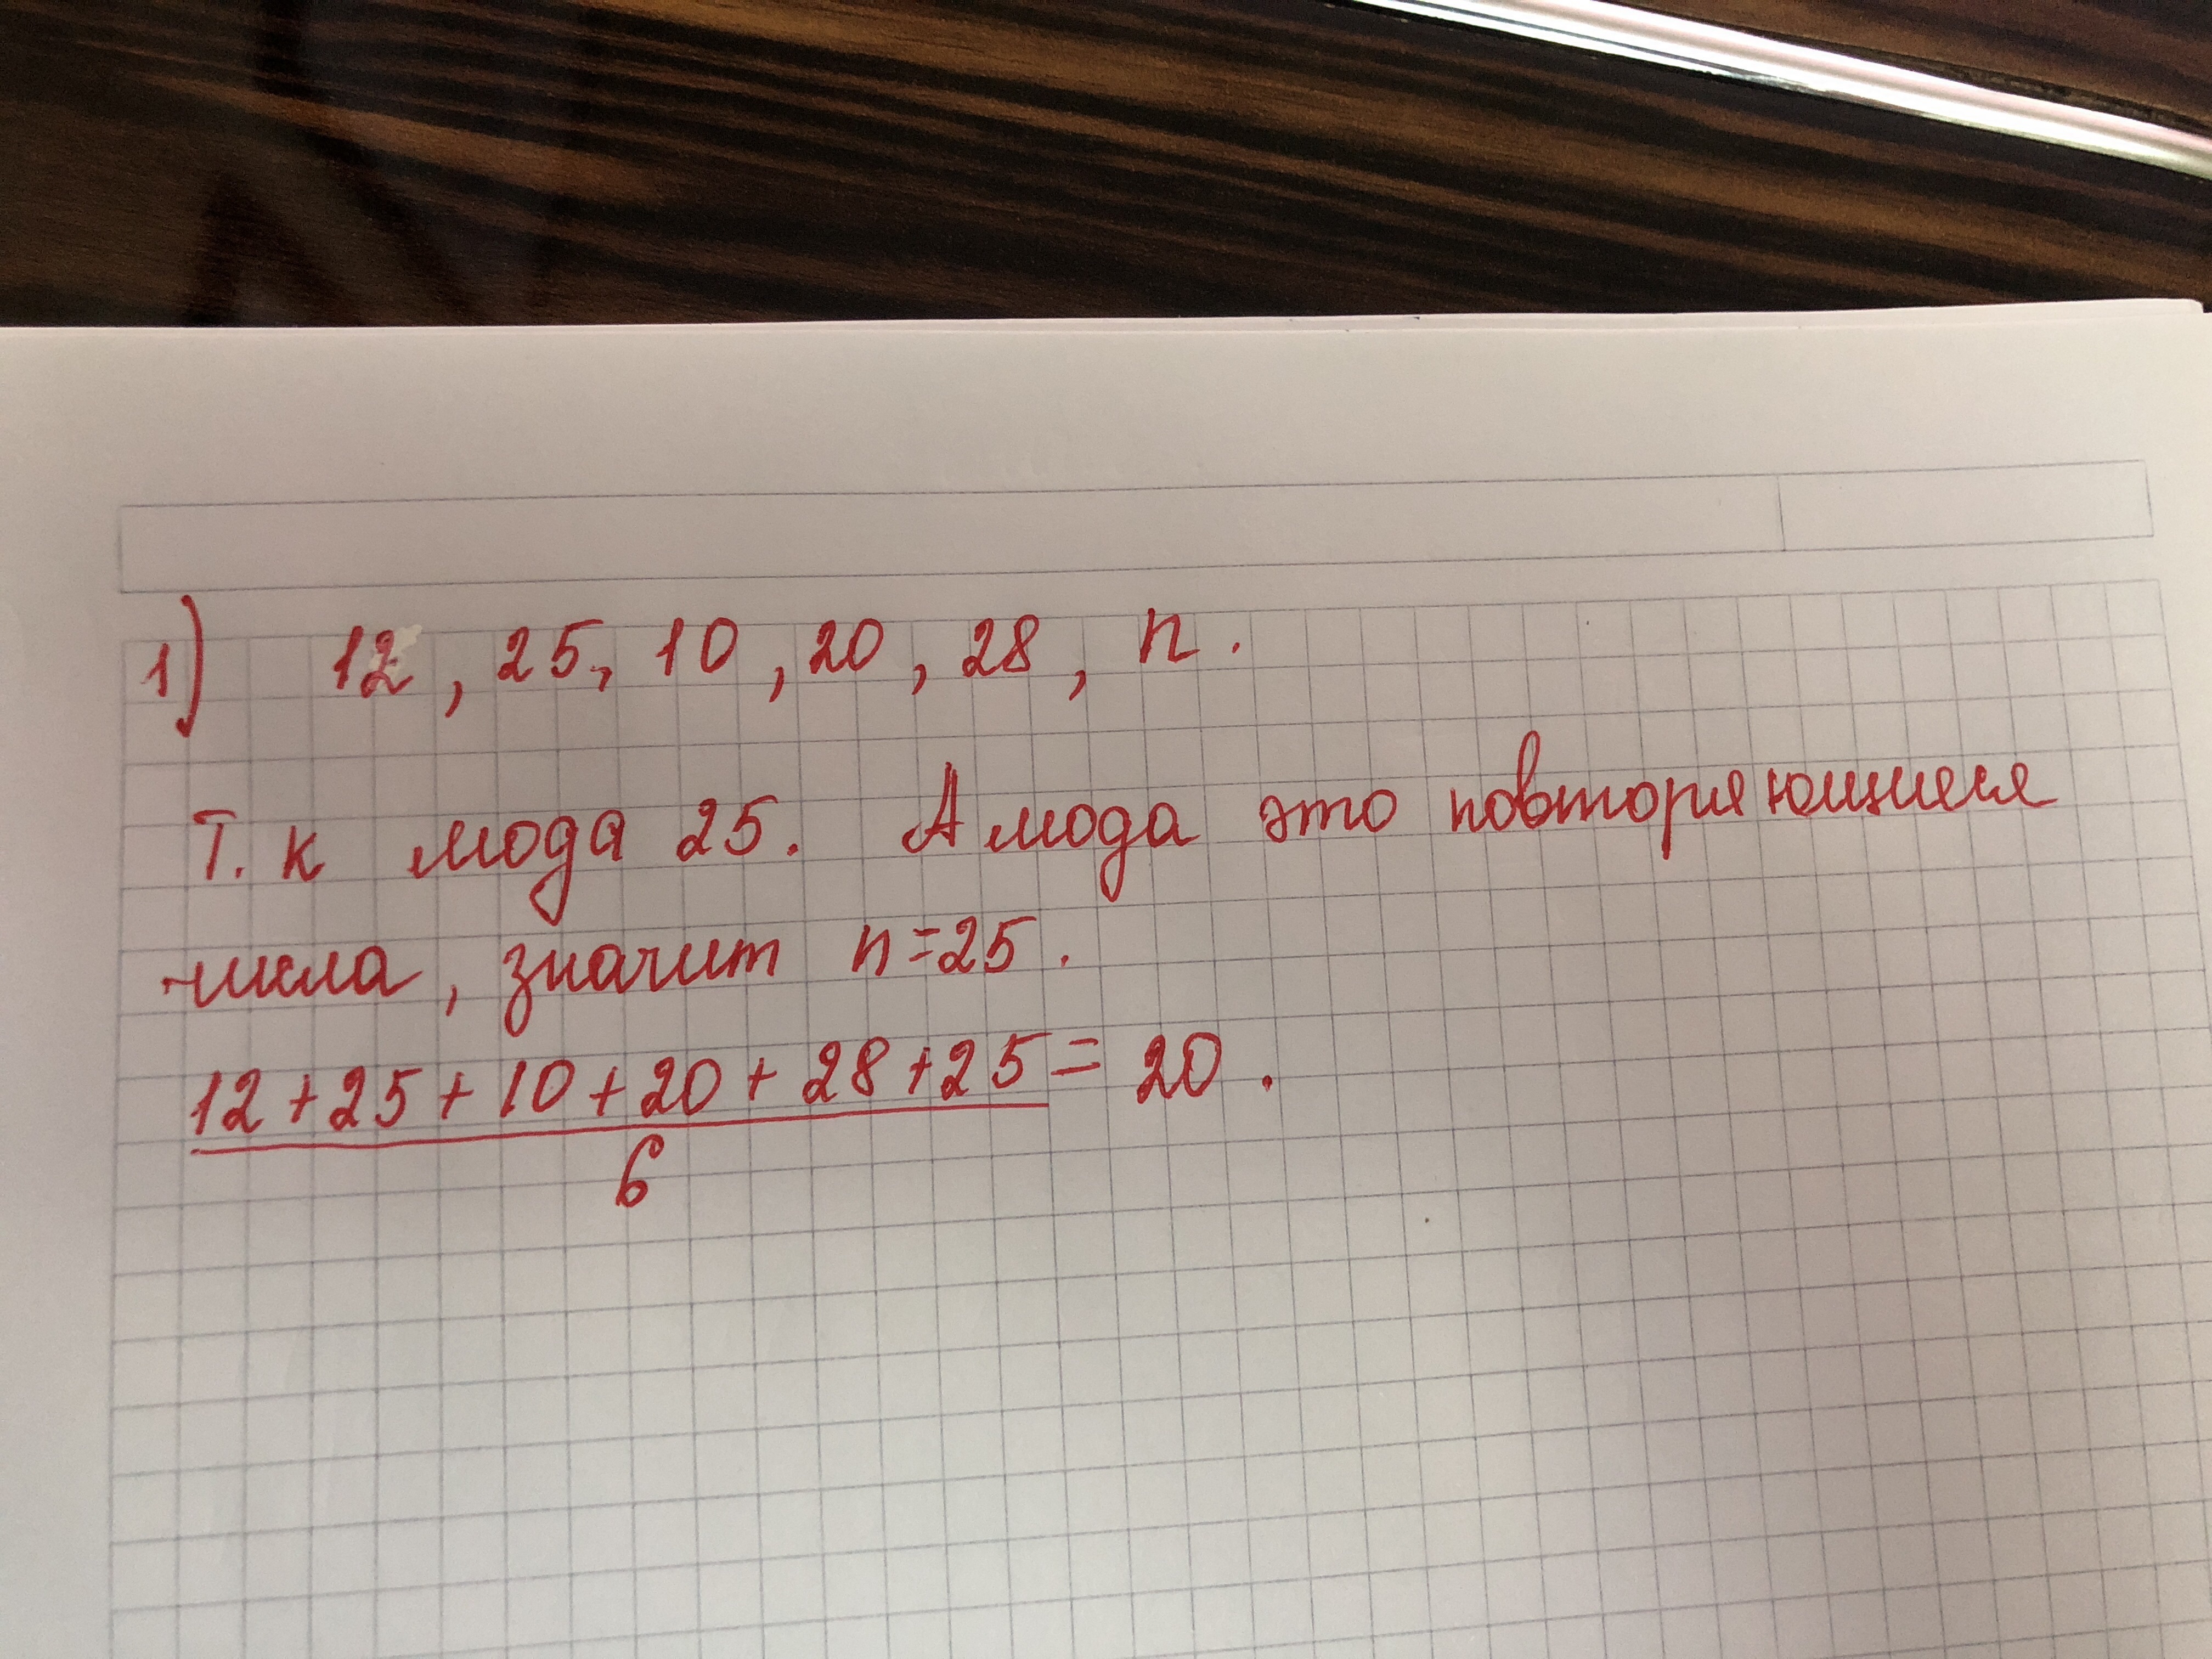 1) 12, 25, 10, 20, 28, n.
Т. к мода 25. А мода это повторяющиеся
числа, значит n=25.
12+25+10+20+28+25 = 20.
6